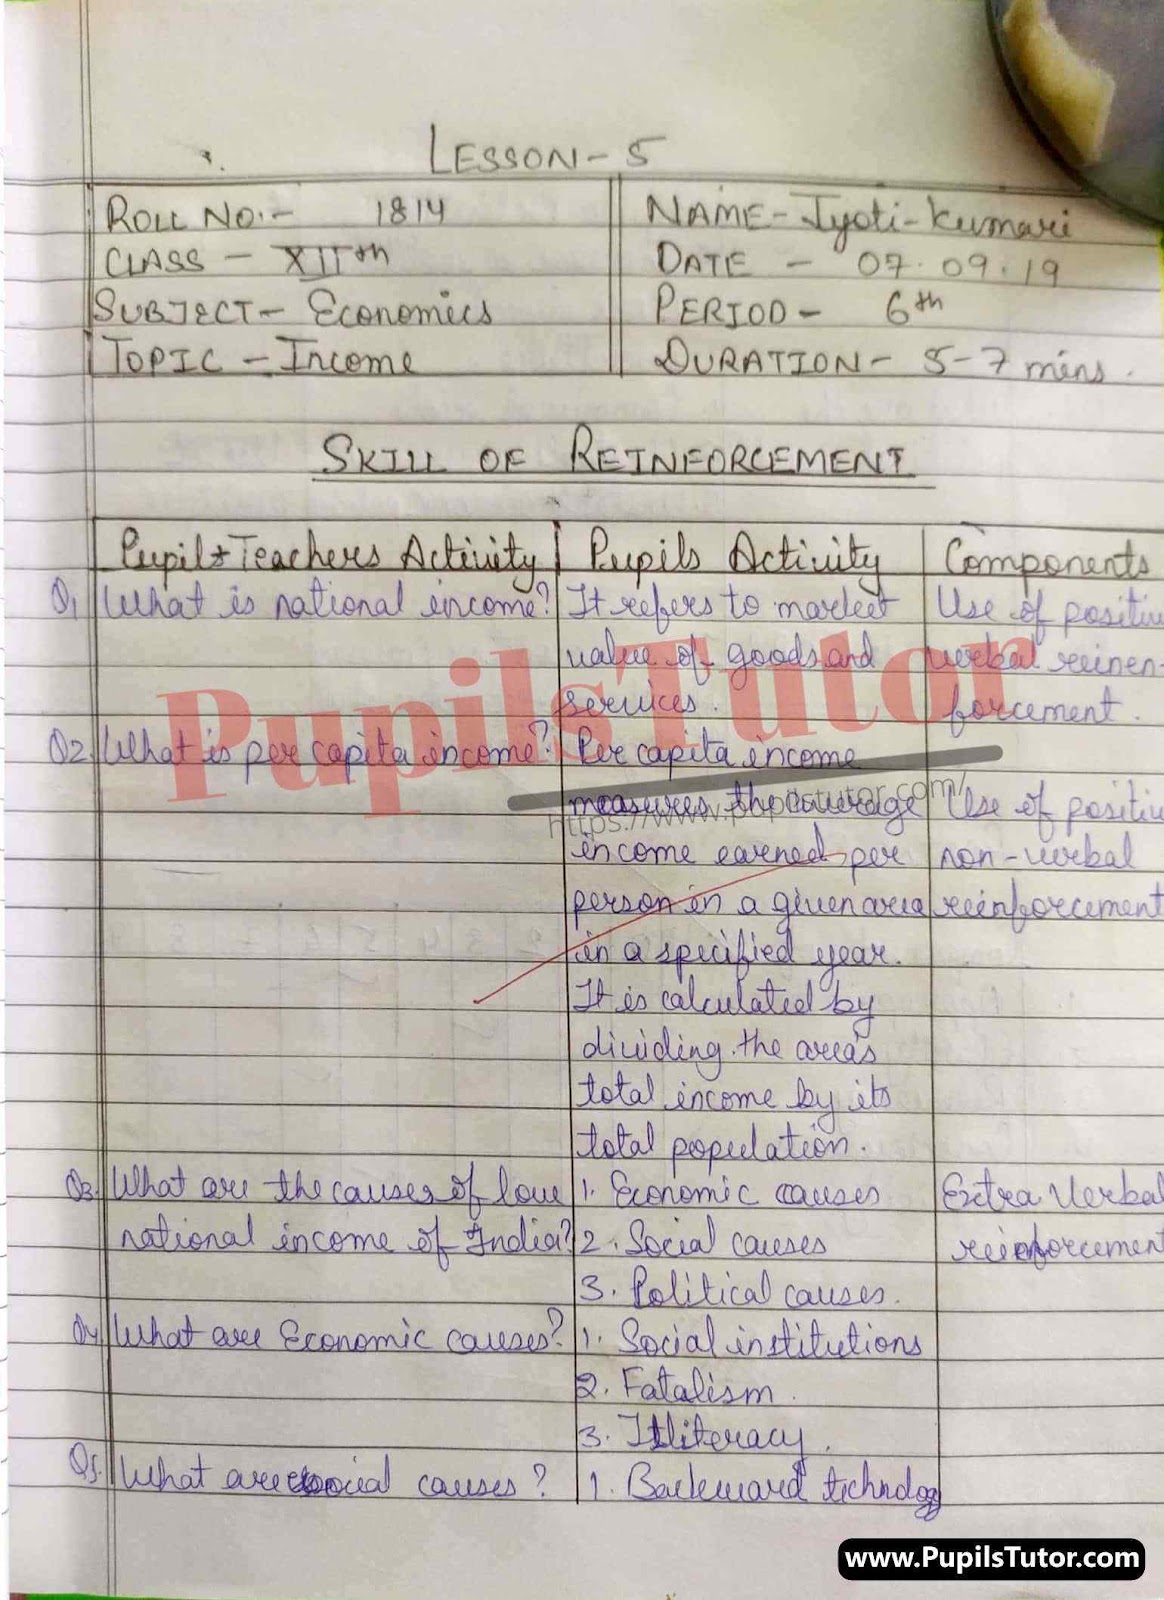 LESSON-5
ROLL NO:- 1814 NAME-Jyoti-Kumari
CLASS - XIIth DATE - 07.09.19
SUBJECT- Economics PERIOD- 6th
TOPIC - Income DURATION- 5-7 mins.
SKILL OF REINFORCEMENT
Pupil-Teachers Activity Pupils Activity Components
Q1 What is national income? It refers to market Use of positive
value of goods and verbal reinen-
services. forcement.
Q2. What is per capita income? Per capita income
measures the average Use of positive
income earned per non-verbal
person in a given area reinforcement
in a specified year.
It is calculated by
dividing the area's
total income by its
total population.
Q3. What are the causes of low 1. Economic causes Extra Verbal
national income of India? 2. Social causes reinforcement
3. Political causes.
Q4 What are Economic causes? 1. Social institutions
2. Fatalism.
3. Illiteracy.
Q5. What are social causes? 1. Backward technology
PupilsTutor
https://www.pupilstutor.com/
www.PupilsTutor.com